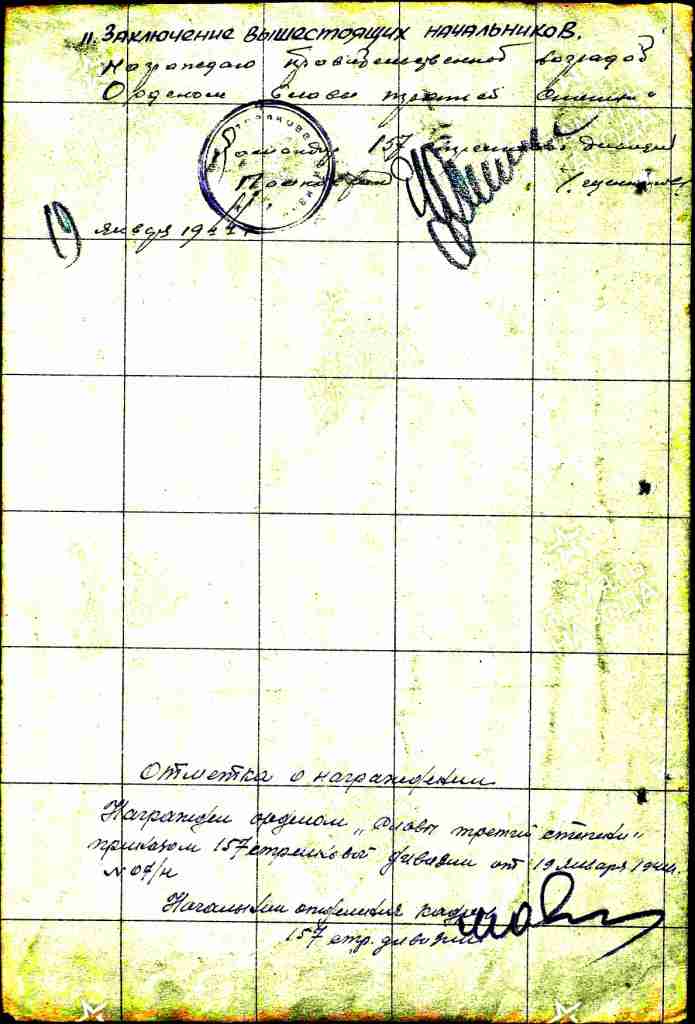 II. Заключение вышестоящих начальников.
Награждаю правительственной наградой
Орденом Славы третьей степени
Командир 157 стрелковой дивизии
Полковник
19 января 1944 г
Отметка о награждении
Награжден орденом „Славы третьей степени"
приказом 157 стрелковой дивизии от 19 января 1944г.
№ 04/н
Начальник отделения кадров
157 стр. дивизии